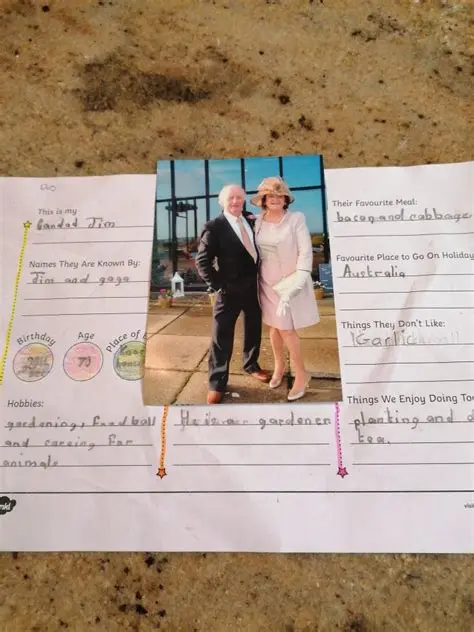 This is my
Gandad Jim
Names They Are Known By:
Jim and gaga
Birthday
Age
Place of B
73
Hobbies:
gardening, football
and careing for
animals
He is a gardener
Their Favourite Meal:
bacon and cabbage
Favourite Place to Go On Holiday
Australia
Things They Don't Like:
Garlic
Things We Enjoy Doing Tog
planting and d
tea.
visi